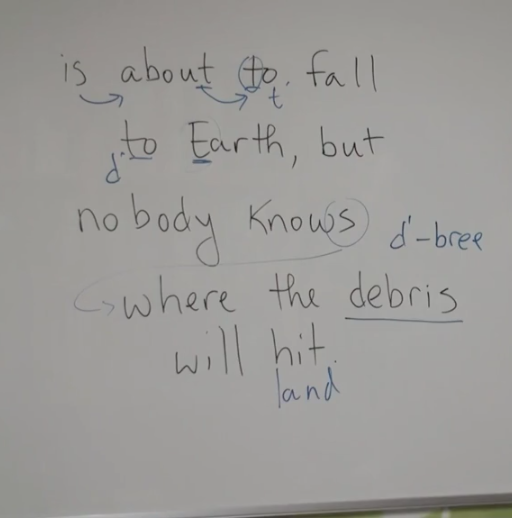 is about to fall
t
to Earth, but
d'
nobody knows
d'-bree
where the debris
will hit.
land